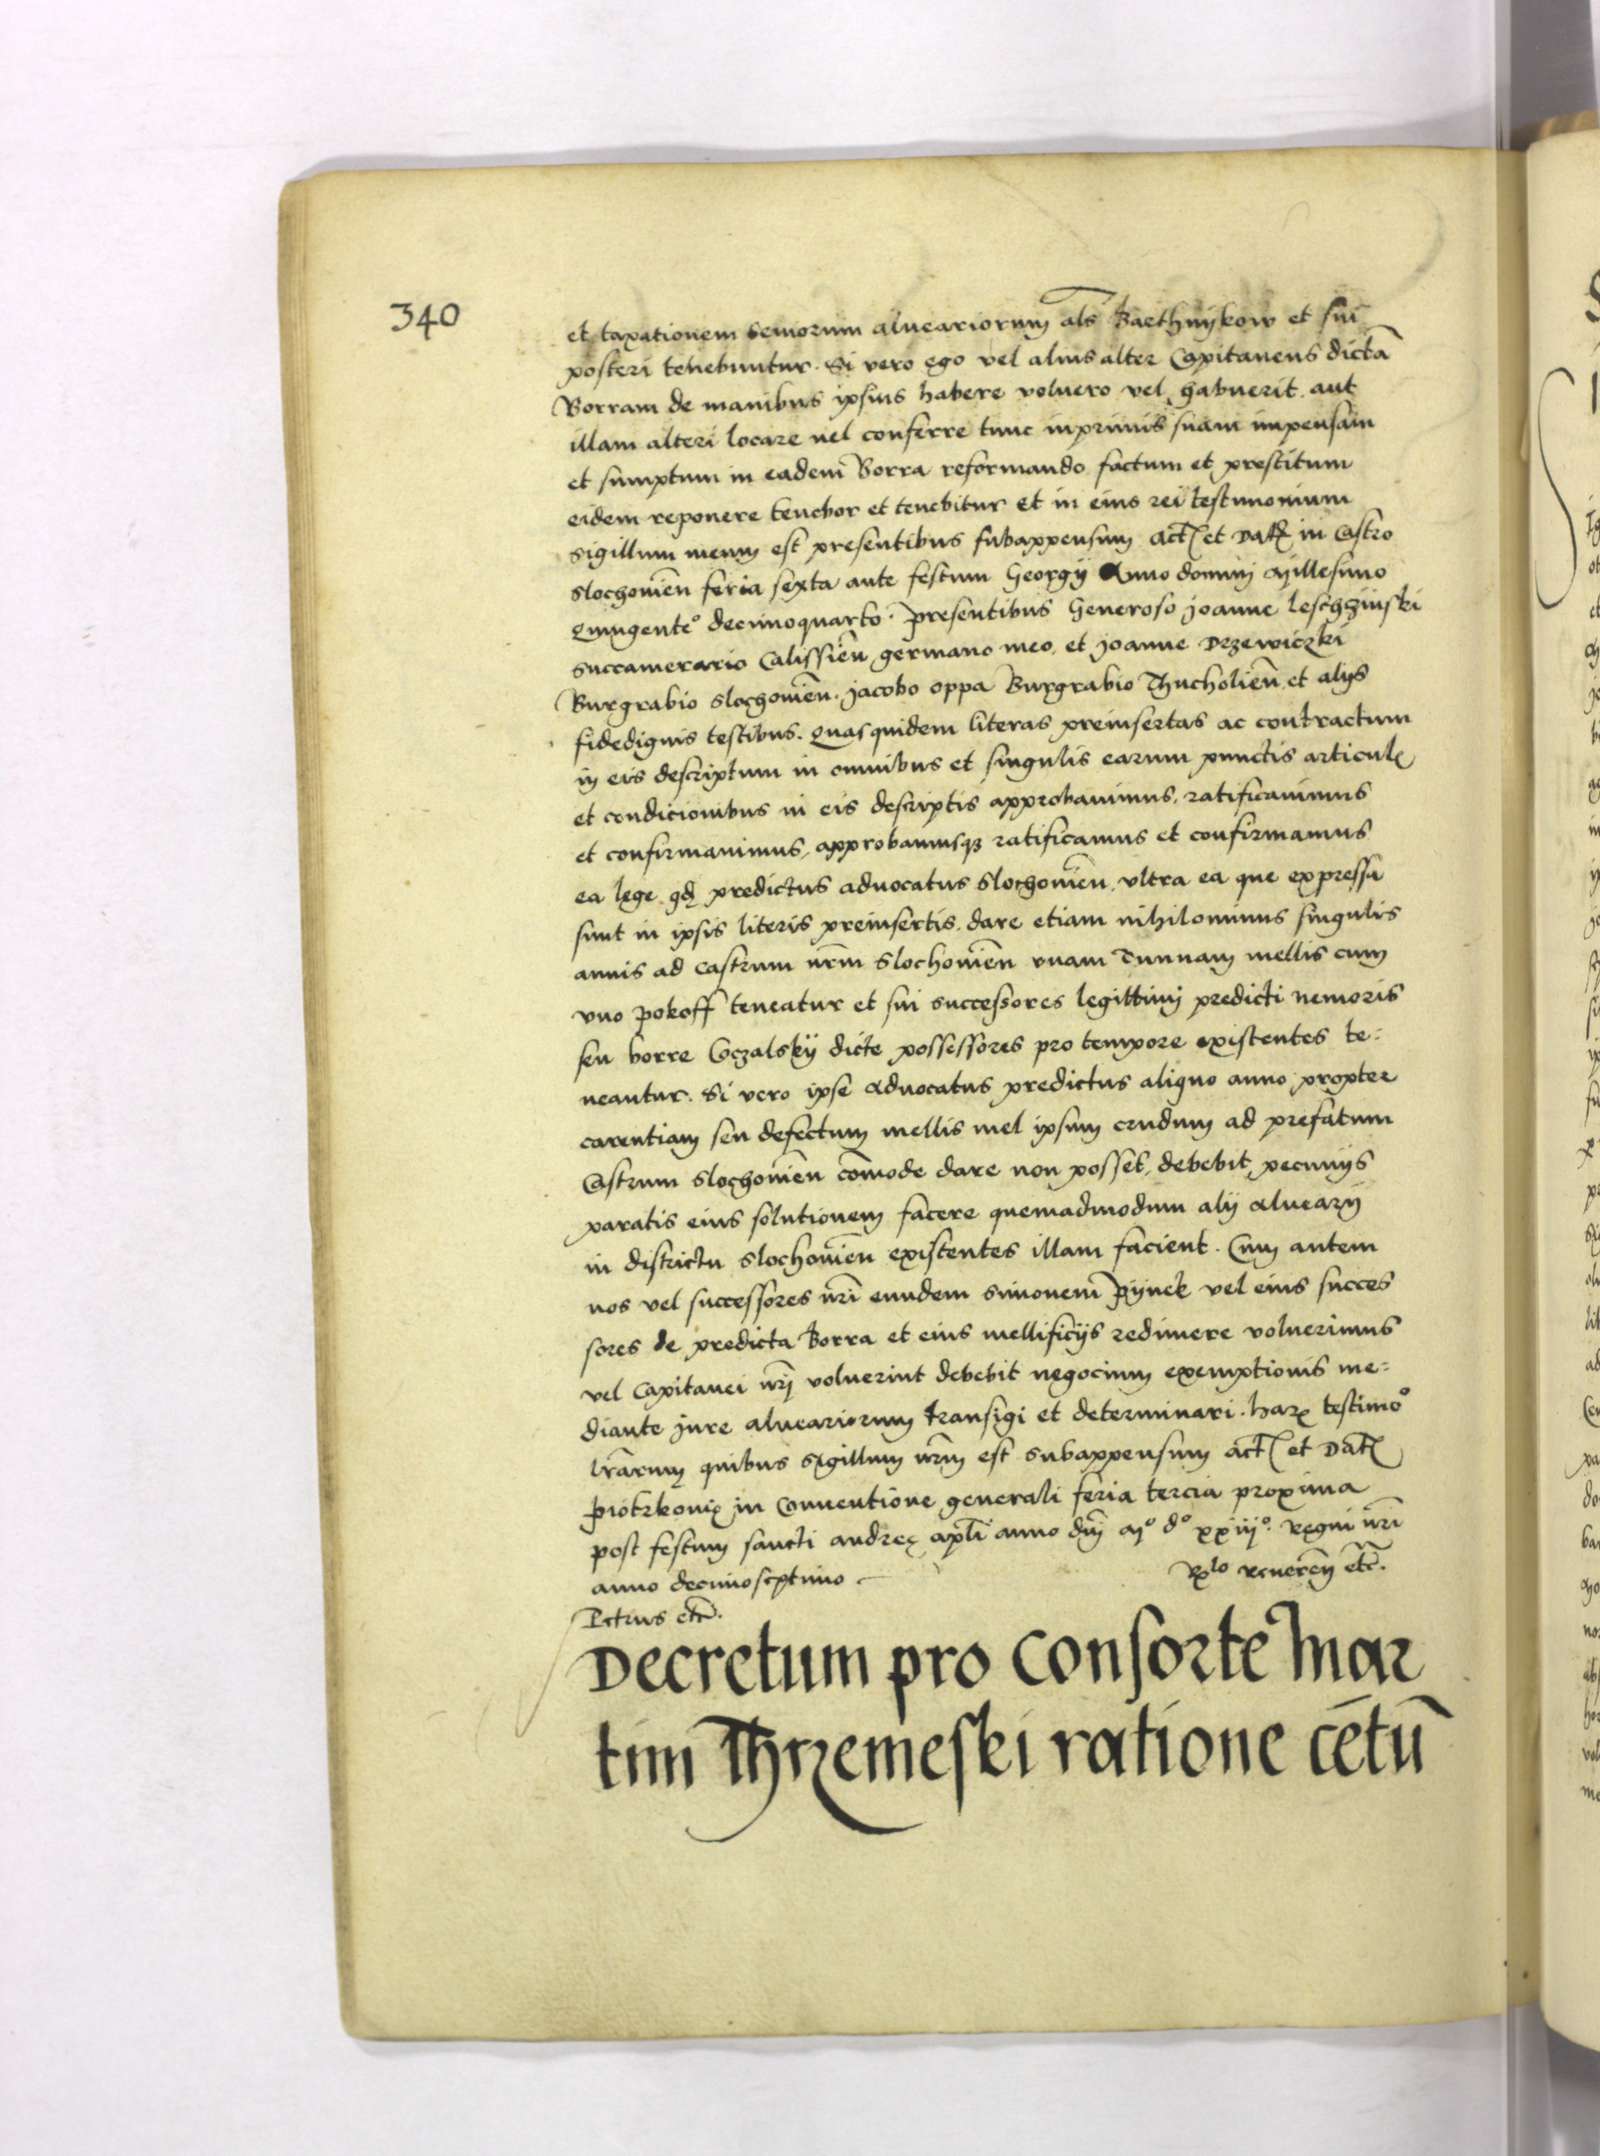 340
et taxationem seniorum alveariorum als Barthnykow et sui
posteri tenebuntur. Si vero ego vel alius alter Capitaneus dictā
Borram de manibus ipsius habere voluero vel habuerit aut
illam alteri locare vel conferre tunc inprimis suam impensam
et sumptum in eadem Borra reformando factum et prestitum
eidem reponere tenebor et tenebitur Et in eius rei testimonium
sigillum meum est presentibus subappensum Act et Dat in Castro
Slochoviēn feria sexta ante festum Georgij Anno domini Millesimo
Quingenteº decimoquarto. Presentibus Generoso Joanne Leschczinski
succamerario Calissiēn germano meo et Joanne Drzewiczki
Burgrabio Slochoviēn. Jacobo oppa Burgrabio Thucholiēn et alijs
fidedignis testibus. Quasquidem literas preinsertas ac contractum
in eis descriptum in omnibus et singulis earum punctis articul
et condicionibus in eis descriptis approbavimus, ratificavimus
et confirmavimus, approbamusqz ratificamus et confirmamus
ea lege qd predictus advocatus Slochoviēn ultra ea que expressa
sunt in ipsis literis preinsertis dare etiam nihilominus singulis
annis ad castrum nr̄m Slochoviēn unam Tunnam mellis cum
uno pokoff teneatur et sui successores legittimi predicti nemoris
seu borre Gczalskij dicte possessores pro tempore existentes te=
neantur. Si vero ipse Advocatus predictus aliquo anno propter
carentiam seu defectum mellis mel ipsum crudum ad prefatum
Castrum Slochoviēn com̄ode dare non posset, debebit pecunijs
paratis eius solutionem facere quemadmodum alij alvearij
in districtu Slochoviēn existentes illam facient. Cum autem
nos vel successores nr̄i eundem Simonem Pijnek vel eius succes
sores de predicta Borra et eius mellificijs redimere voluerimus
vel Capitanei nr̄i voluerint debebit negocium exemptionis me=
diante jure alveariorum transigi et determinari. Har testimoº
lr̄arum quibus sigillum nr̄m est subappensum Act et Dat
Piotrkovie in Conventione generali feria tercia proxima
post festum sancti andreę apl̄i anno dn̄i Mº dº xxiijº. Regni nr̄i
anno decimoseptimo
Rlo Reveren̄ etc̄.
Petrus etc̄.
Decretum pro Consorte Mar
tini Thrzemeski ratione cētū